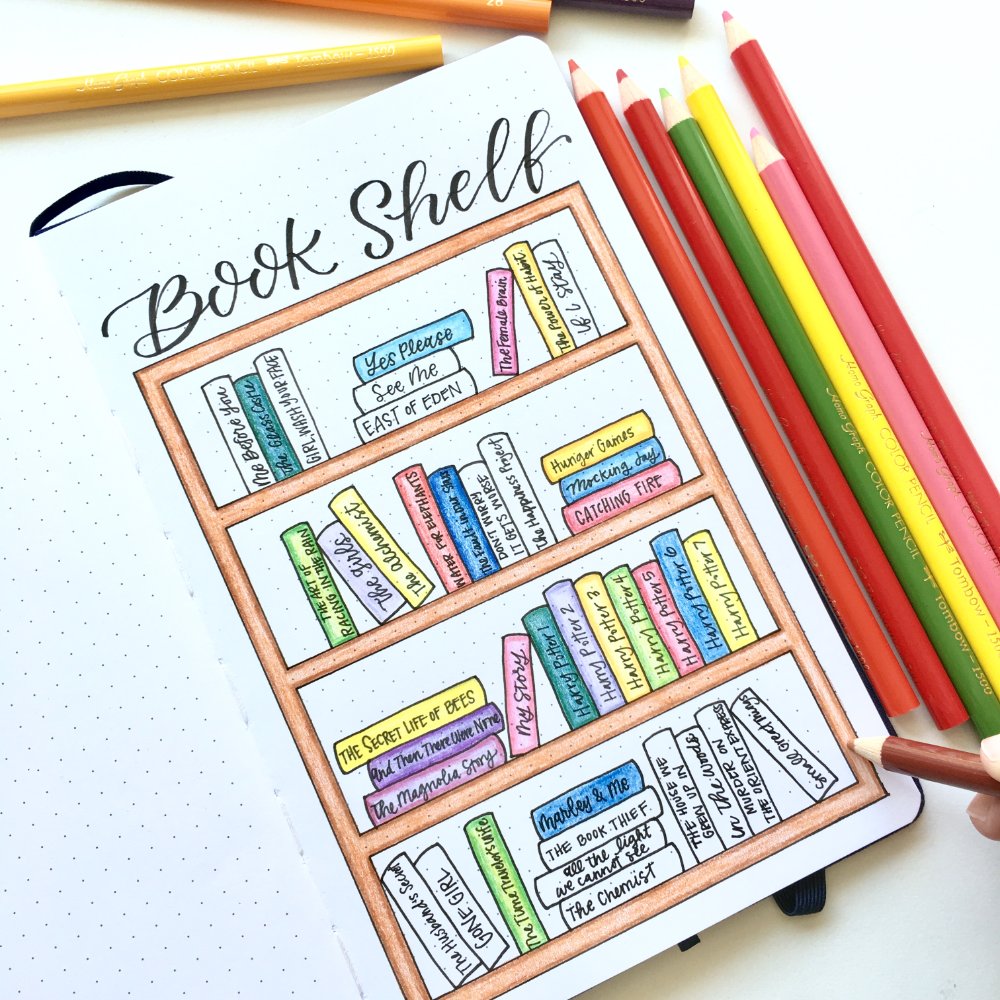 Book Shelf
Me Before You
The Glass Castle
GIRL, WASH YOUR FACE
Yes Please
See Me
EAST OF EDEN
The Female Brain
The Power of Habit
If I Stay
THE ART OF
RACING IN THE RAIN
The girls
The alchemist
WATER FOR ELEPHANTS
The Fault in our Stars
DON'T WORRY
IT GETS WORSE
The Happiness Project
HUNGER GAMES
Mocking Jay
CATCHING FIRE
THE SECRET LIFE OF BEES
And Then There Were None
The Magnolia Story
My Story
Harry Potter 1
Harry Potter 2
Harry Potter 3
Harry Potter 4
Harry Potter 5
Harry Potter 6
Harry Potter 7
The Husband's Secret
GONE GIRL
The Time Traveler's Wife
Marley & Me
THE BOOK THIEF
all the light
we cannot see
The Chemist
THE HOUSE WE
GREW UP IN
In The Woods
MURDER ON
THE ORIENT EXPRESS
Small Great Things
COLOR PENCIL Tombow-1500
Homo Graph COLOR PENCIL Tombow-1500
Homo Graph COLOR PENCIL Tombow-150
Homo Graph COLOR